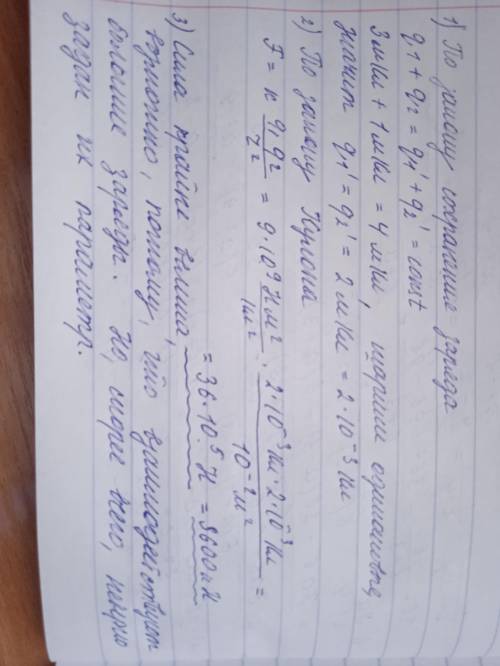 1) По закону сохранения заряда
q1 + q2 = q1' + q2' = const
3 мКл + 1 мКл = 4 мКл, шарики одинаковы,
значит q1' = q2' = 2 мКл = 2·10⁻³ Кл
2) По закону Кулона
F = k q1 q2 / r² = 9·10⁹ Н м² / Кл² · 2·10⁻³ Кл · 2·10⁻³ Кл / 10⁻² м² =
= 36·10⁵ Н = 3600 кН
3) Сила крайне велика,
возможно, потому, что взаимодействуют
большие заряды. Но, скорее всего,
задан их параметр.